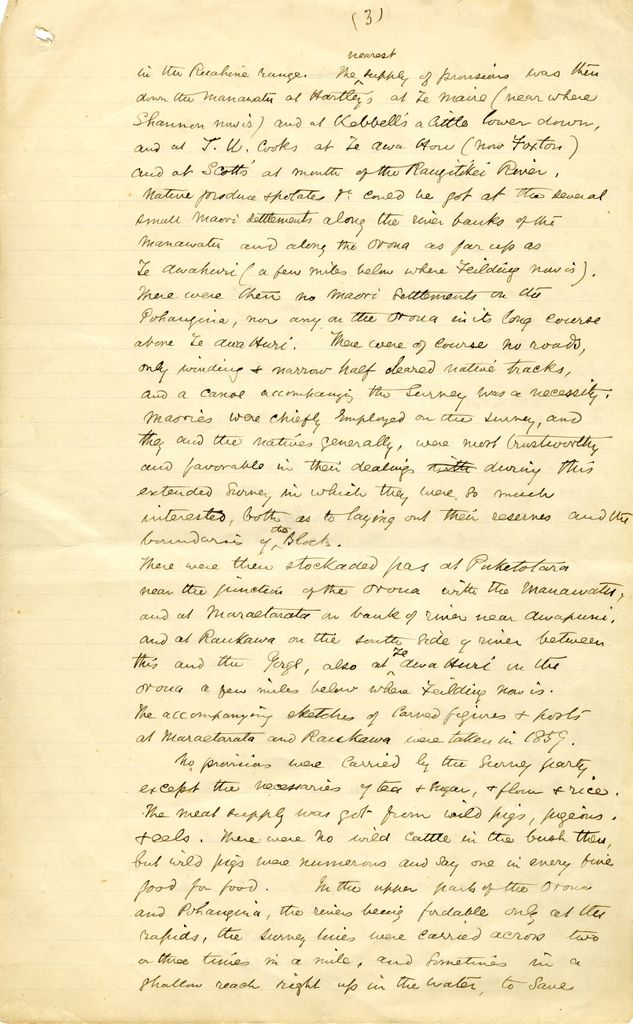 (3)
nearest
in the Ruahine range. The supply of provisions was then
down the Manawatu at Hartley's at Te Maire (near where
Shannon now is) and at Kebbell's a little lower down,
and at T. U. Cooks at Te awa Hou (now Foxton)
and at Scotts at mouth of the Rangitikei River.
Native produce & potatoes &c could be got at the several
small Maori settlements along the river banks of the
Manawatu and along the Oroua as far up as
Te Awahuri (a few miles below where Feilding now is).
There were then no Maori Settlements on the
Pohangina, nor any on the Oroua in its long course
above Te awa Huri. There were of course no roads,
only winding & narrow half cleared native tracks,
and a canoe accompanying the Survey was a necessity.
Maories were chiefly Employed on the survey, and
they and the natives generally, were most trustworthy
and favorable in their dealings with during this
extended Survey in which they were so much
interested, both as to laying out their reserves and the
boundaries of the Block.
There were then stockaded pas at Puketotara
near the junction of the Oroua with the Manawatu,
and at Maraetarata on bank of river near Awapuni,
and at Raukawa on the south side of river between
this and the Gorge, also at Te awa Huri in the
Oroua a few miles below where Feilding now is.
The accompanying sketches of Carved figures & posts
at Maraetarata and Raukawa were taken in 1859.
No provisions were carried by the Survey party
except the necessaries of tea & sugar, & flour & rice.
The meat supply was got from wild pigs, pigeons,
& eels. There were no wild cattle in the bush then,
but wild pigs were numerous and say one in every five
good for food. In the upper parts of the Oroua
and Pohangina, the rivers being fordable only at the
rapids, the survey lines were carried across two
or three times in a mile, and sometimes in a
shallow reach right up in the water, to save